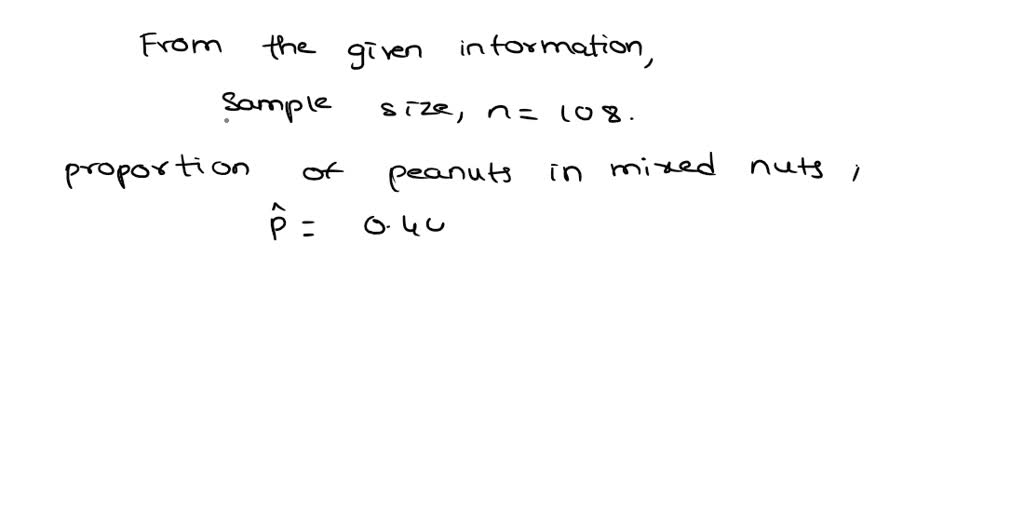 From the given information,
Sample size, n = 108.
proportion of peanuts in mixed nuts,
p̂ = 0.40